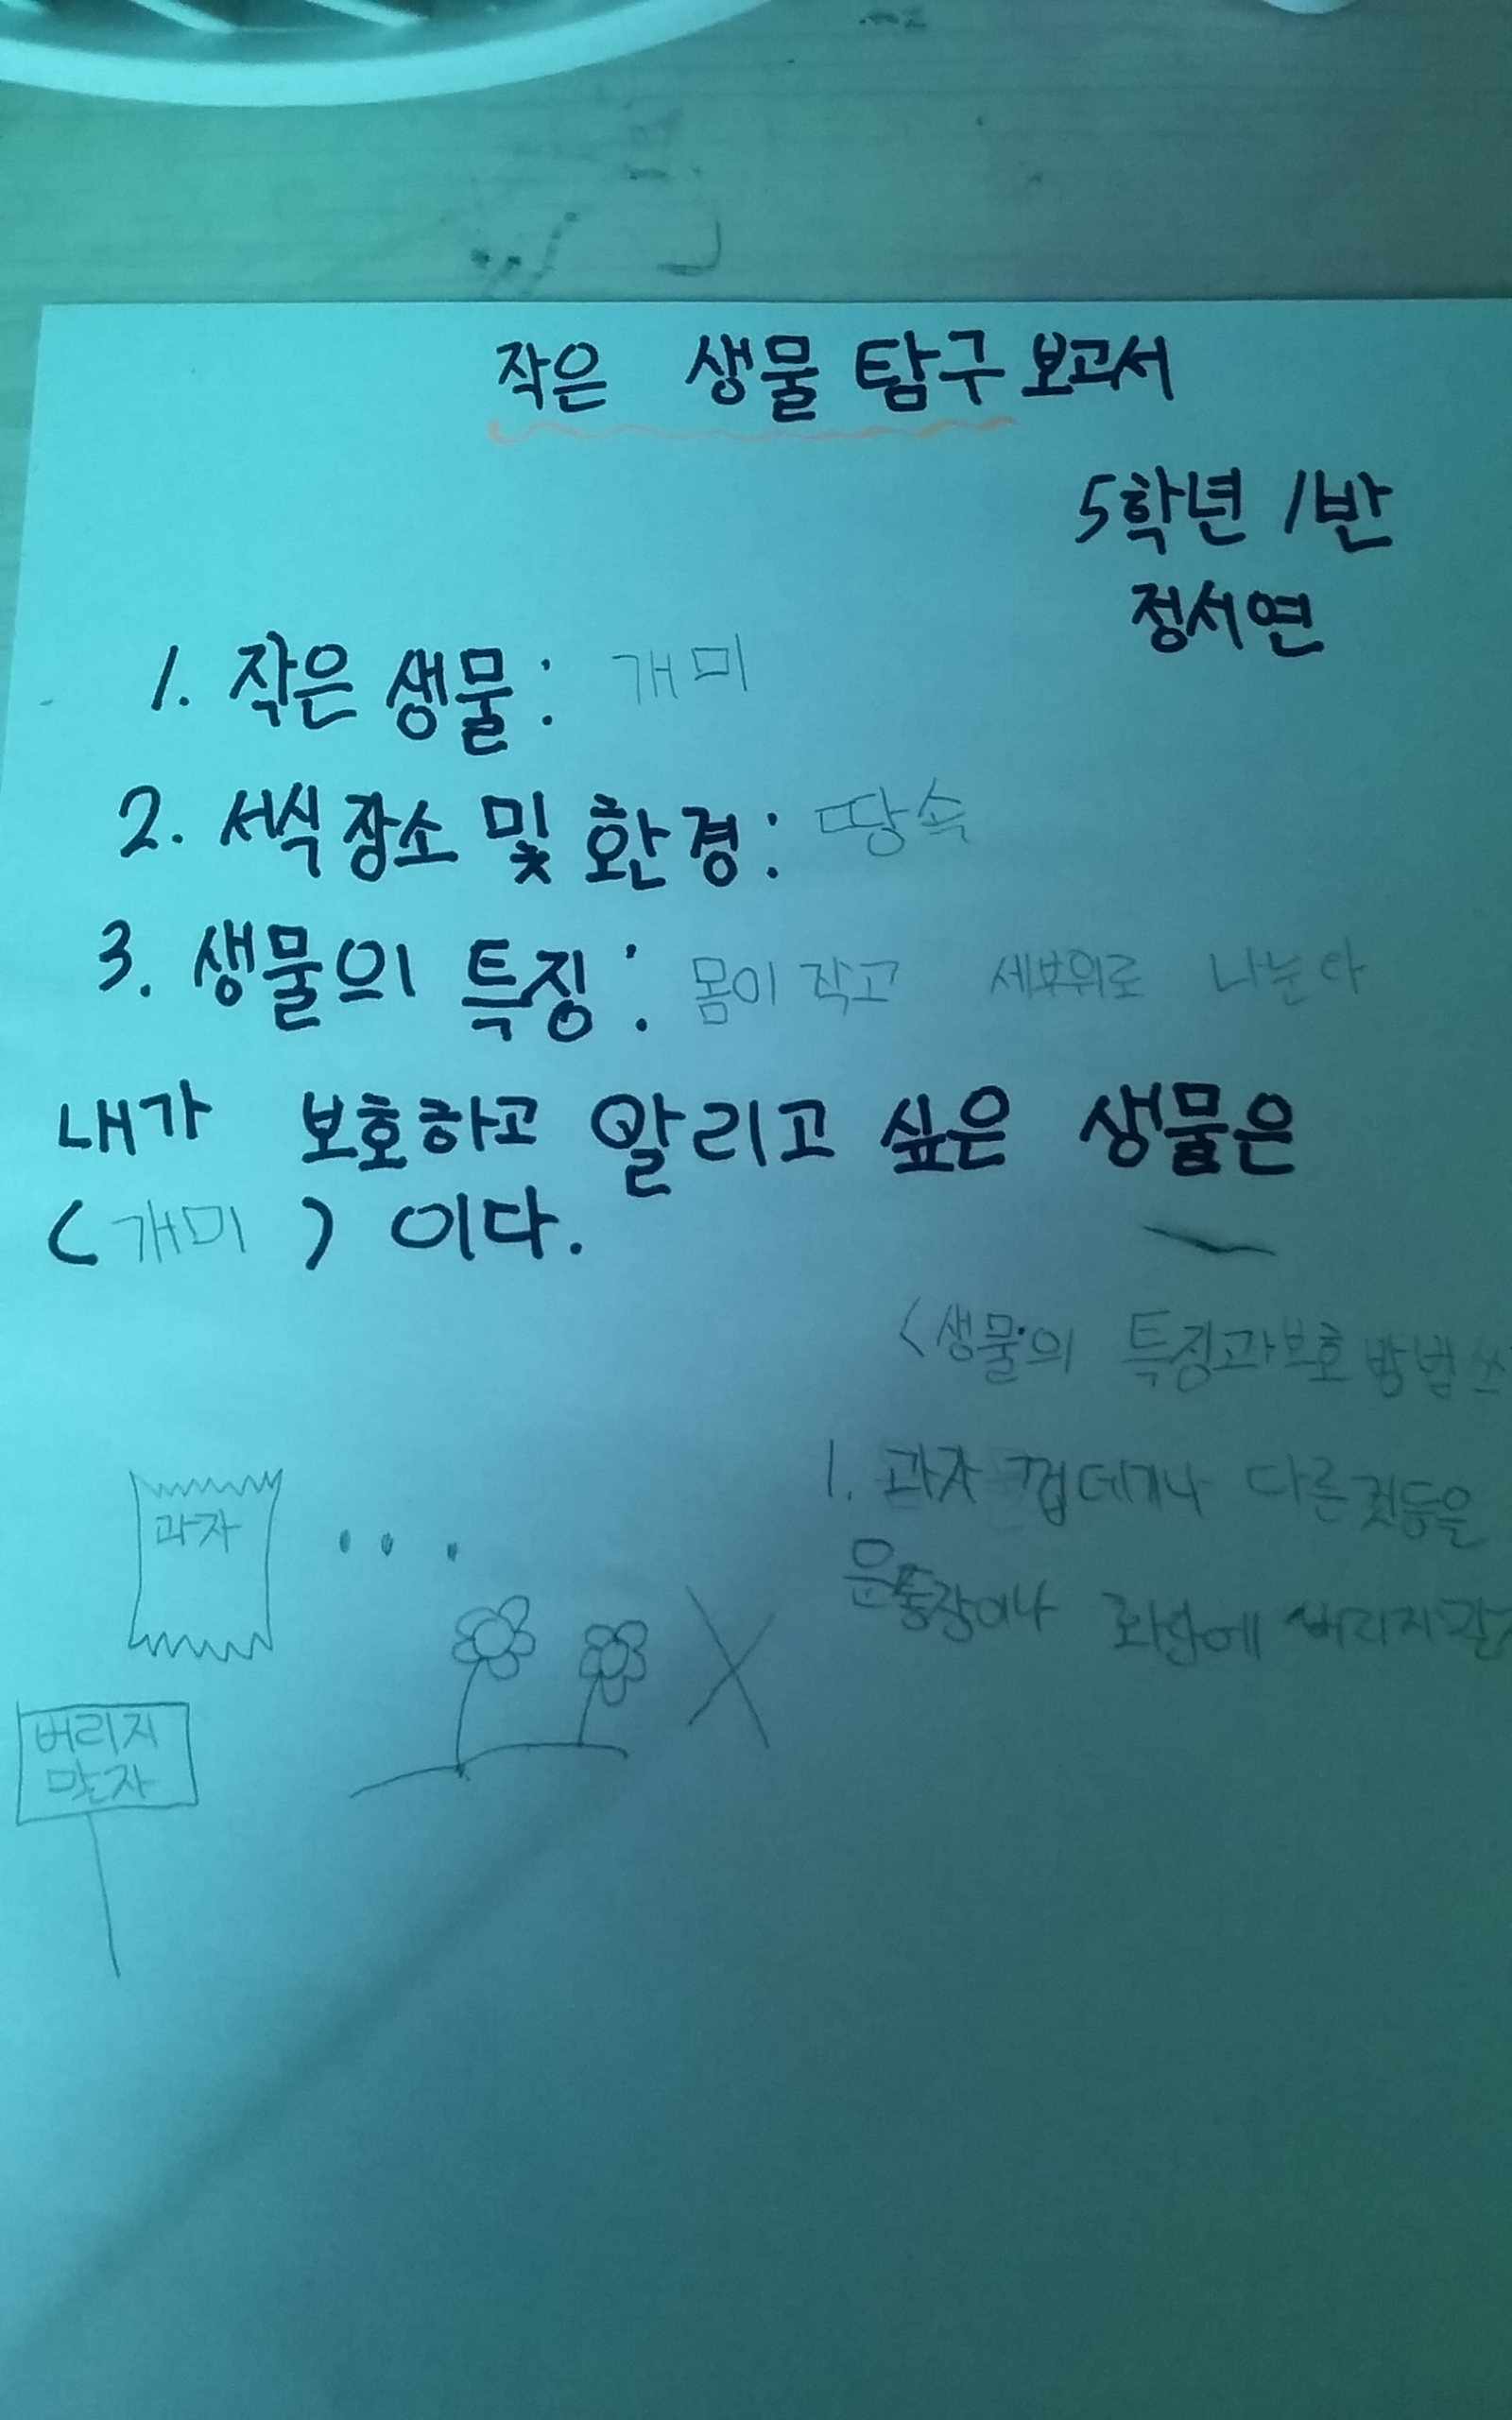 작은 생물 탐구 보고서
5학년 1반
정서연
1. 작은 생물: 개미
2. 서식 장소 및 환경: 땅속
3. 생물의 특징: 몸이 작고 세부위로 나눈다
내가 보호하고 알리고 싶은 생물은
(개미) 이다.
<생물의 특징과 보호 방법
1. 과자 껍데기나 다른것등을
운동장이나 화단에 버리지
과자
버리지
말자